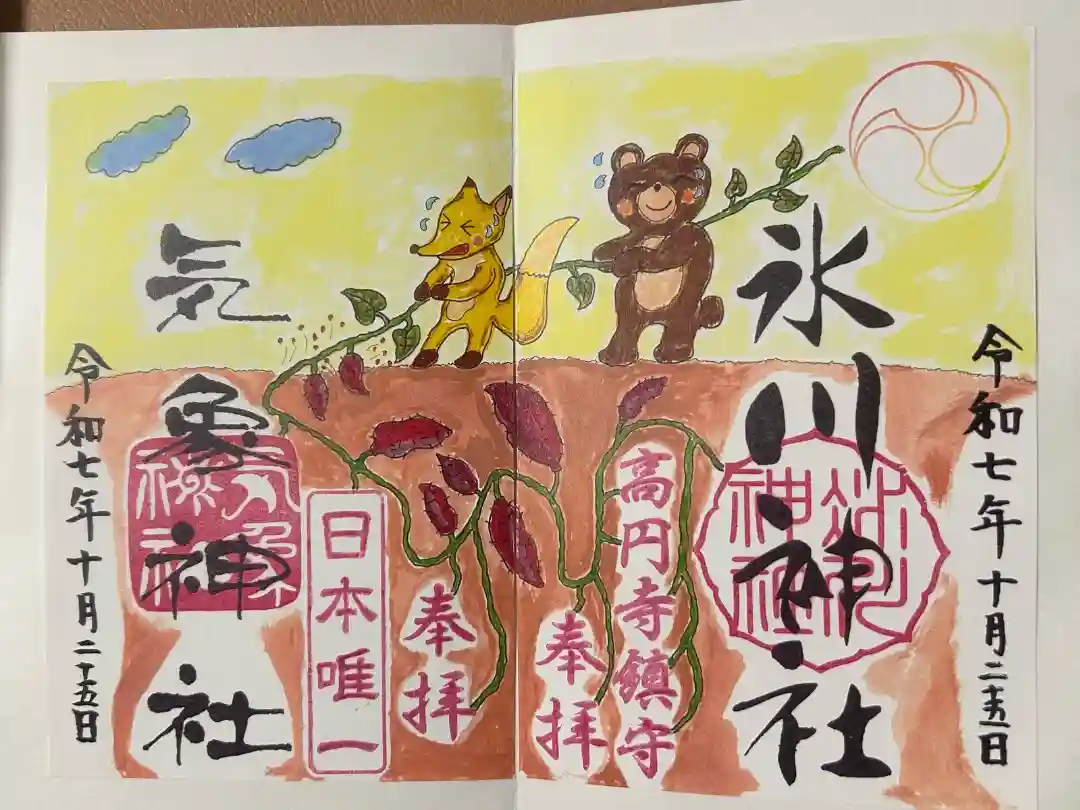 令和七年十月二十五日
氷川神社
氷川神社
高円寺鎮守
奉拝
奉拝
日本唯一
気象神社
気象神社
令和七年十月二十五日